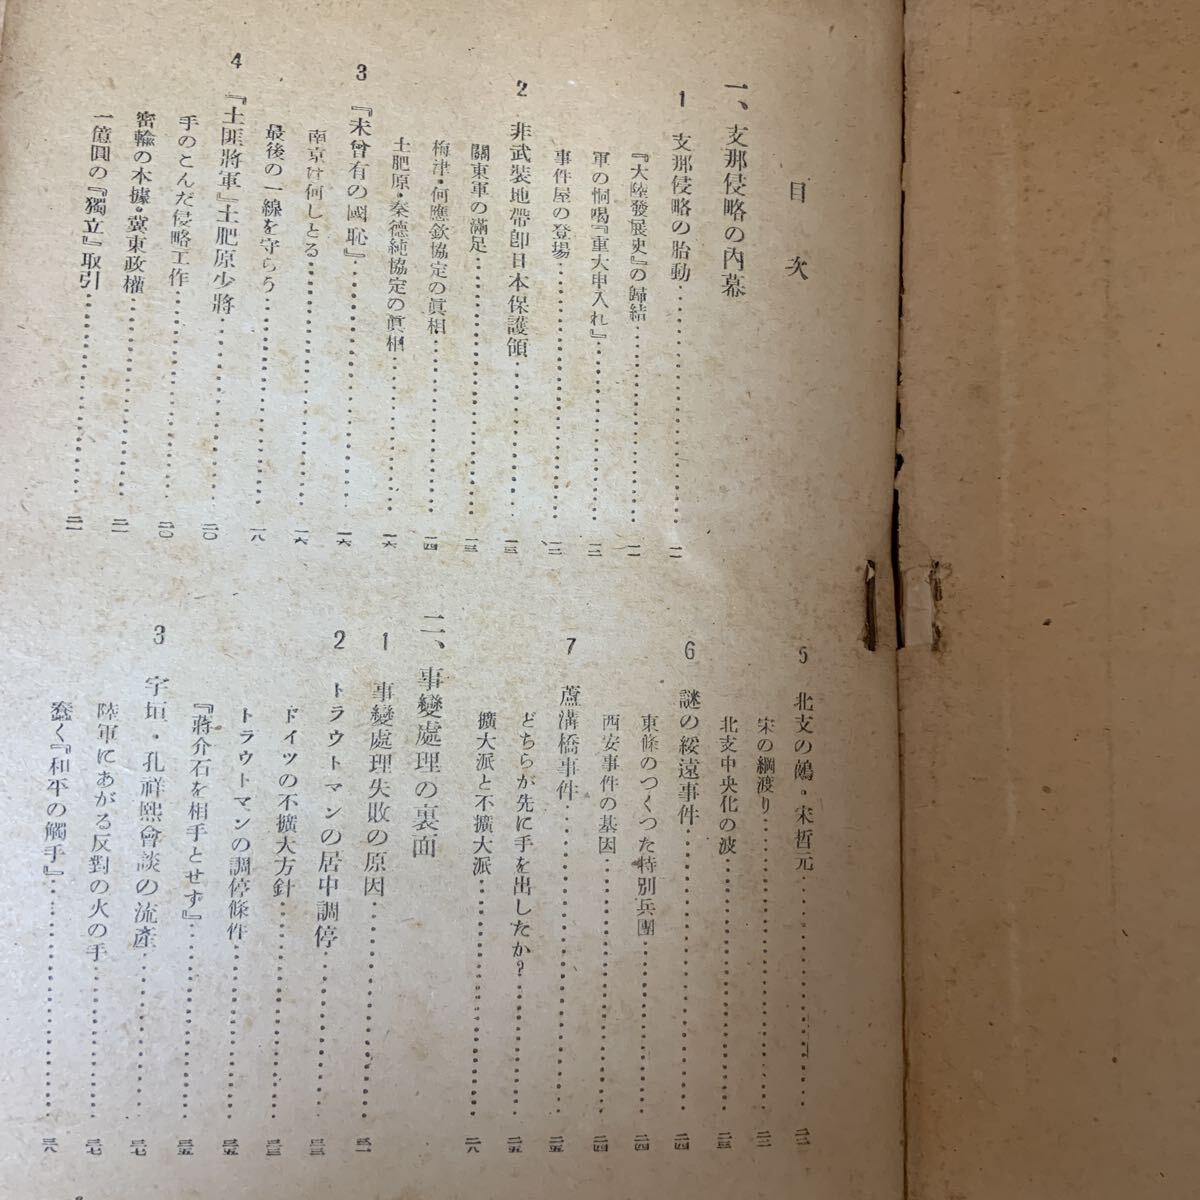 目次
一、支那侵略の内幕
1 支那侵略の胎動……一一
『大陸發展史』の歸結……一一
軍の恫喝『重大申入れ』……一二
事件屋の登場……一二
2 非武装地帶卽日本保護領……一三
關東軍の滿足……一三
梅津・何應欽協定の眞相……一四
土肥原・秦德純協定の眞相……一六
3 『未曾有の國恥』……一六
南京は何しとる……一六
最後の一線を守らう……一八
4 『土匪將軍』土肥原少將……二〇
手のこんだ侵略工作……二〇
密輸の本據・冀東政權……二一
一億圓の『獨立』取引……二一
5 北支の鵺・宋哲元……二二
宋の綱渡り……二二
北支中央化の波……二三
6 謎の綏遠事件……二四
東條のつくつた特別兵團……二四
西安事件の基因……二四
7 蘆溝橋事件……二五
どちらが先に手を出したか?……二五
擴大派と不擴大派……二八
二、事變處理の裏面
1 事變處理失敗の原因……三一
2 トラウトマンの居中調停……三三
ドイツの不擴大方針……三三
トラウトマンの調停條件……三五
『蔣介石を相手とせず』……三五
3 宇垣・孔祥熙會談の流產……三七
陸軍にあがる反對の火の手……三七
蠢く『和平の觸手』……三八